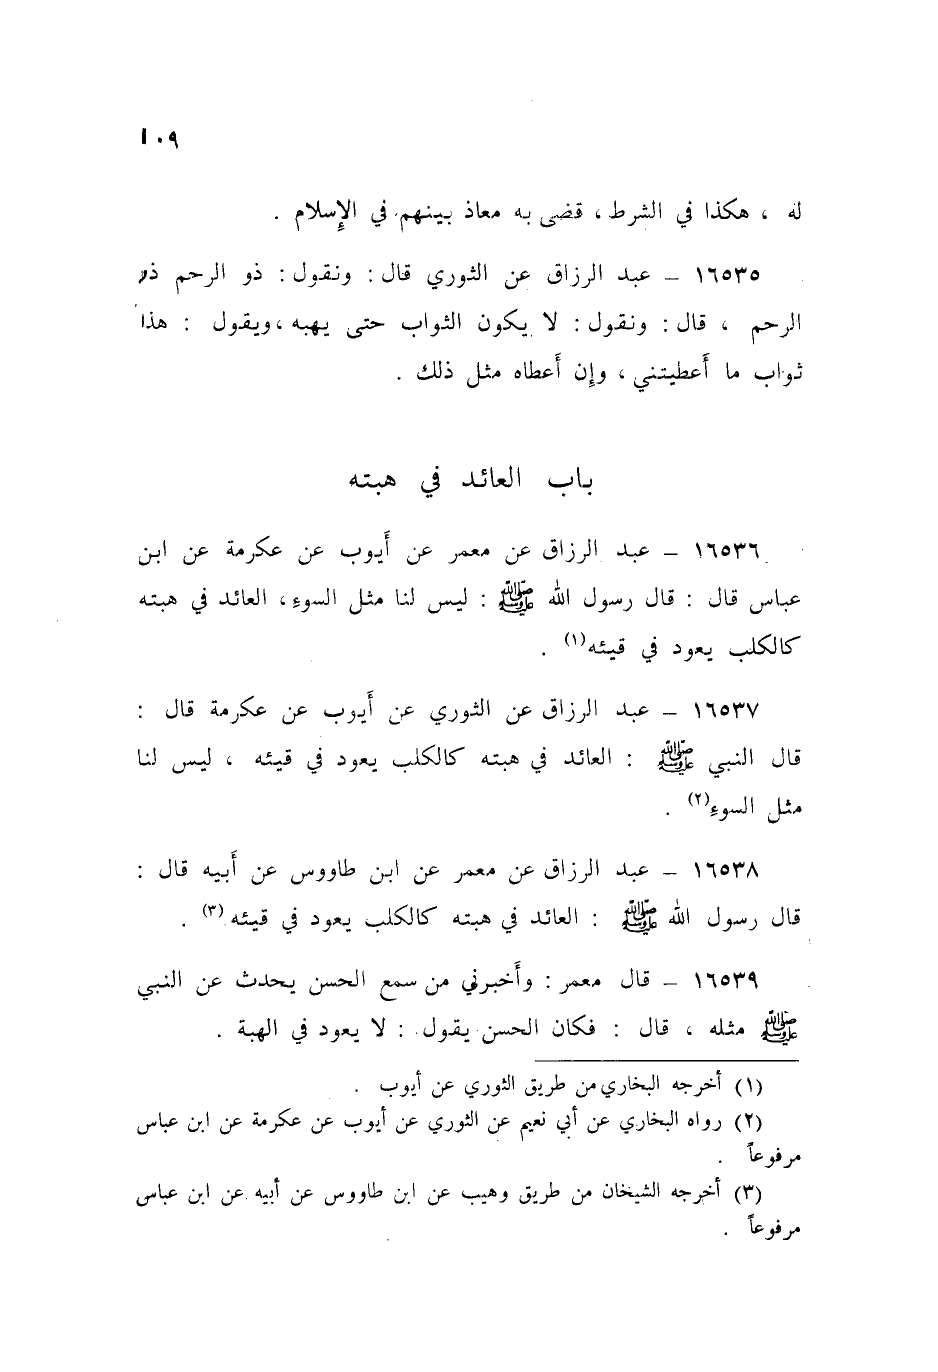 ١٠٩
له ، هكذا في الشرط ، قضى به معاذ بينهم في الإسلام .
١٦٥٣٥ – عبد الرزاق عن الثوري قال : ونقول : ذو الرحم ذو
الرحم ، قال : ونقول : لا يكون الثواب حتى يهبه ، ويقول : هذا
ثواب ما أعطيتني ، وإن أعطاه مثل ذلك .
باب العائد في هبته
١٦٥٣٦ – عبد الرزاق عن معمر عن أيوب عن عكرمة عن ابن
عباس قال : قال رسول الله ﷺ : ليس لنا مثل السوء ، العائد في هبته
كالكلب يعود في قيئه(١) .
١٦٥٣٧ – عبد الرزاق عن الثوري عن أيوب عن عكرمة قال :
قال النبي ﷺ : العائد في هبته كالكلب يعود في قيئه ، ليس لنا
مثل السوء(٢) .
١٦٥٣٨ – عبد الرزاق عن معمر عن ابن طاووس عن أبيه قال :
قال رسول الله ﷺ : العائد في هبته كالكلب يعود في قيئه(٣) .
١٦٥٣٩ – قال معمر : وأخبرني من سمع الحسن يحدث عن النبي
ﷺ مثله ، قال : فكان الحسن يقول : لا يعود في الهبة .
(١) أخرجه البخاري من طريق الثوري عن أيوب .
(٢) رواه البخاري عن أبي نعيم عن الثوري عن أيوب عن عكرمة عن ابن عباس
مرفوعاً .
(٣) أخرجه الشيخان من طريق وهيب عن ابن طاووس عن أبيه عن ابن عباس
مرفوعاً .